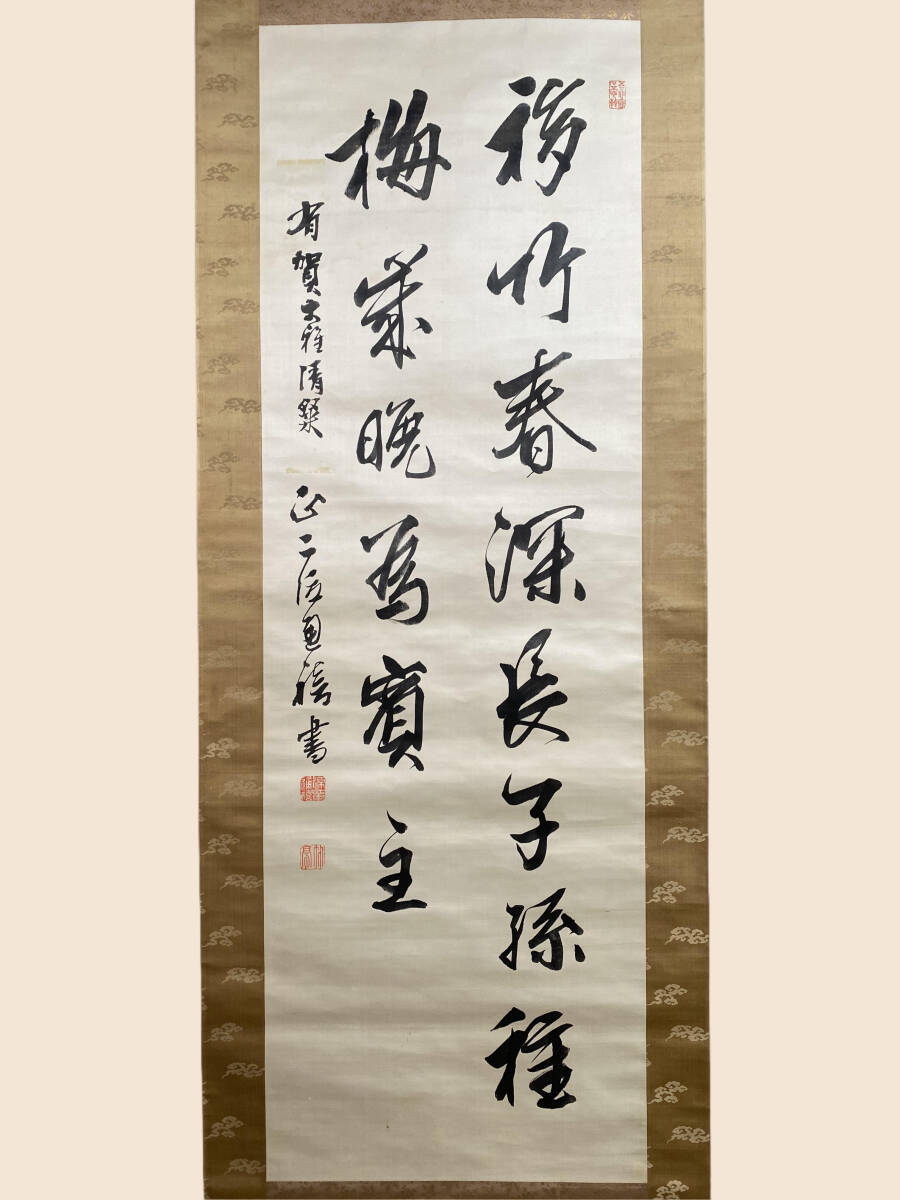 移竹春深長子孫種
梅歳晩為賓主
有賀大雅清鑒 正二位通禧書